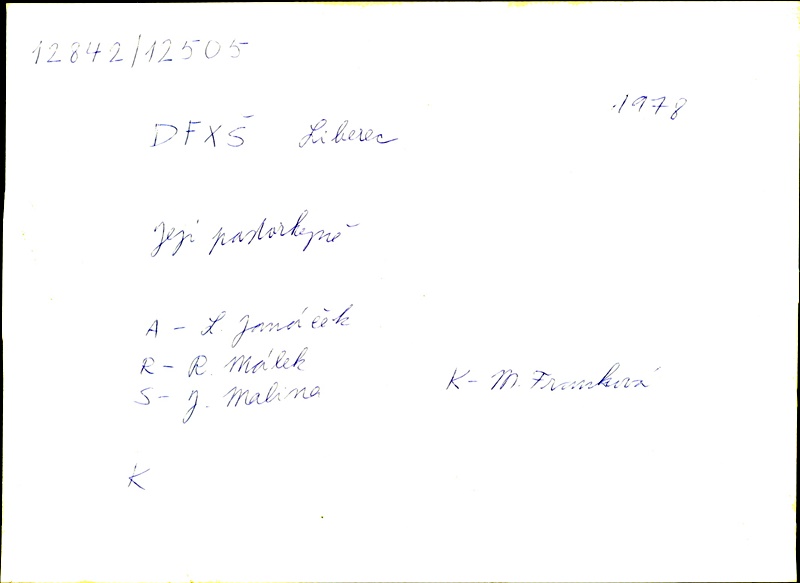 12842/12505
1978
DFXŠ Liberec
Její pastorkyně
A - L. Janáček
R - R. Málek
S - J. Malina
K - M. Franková
K